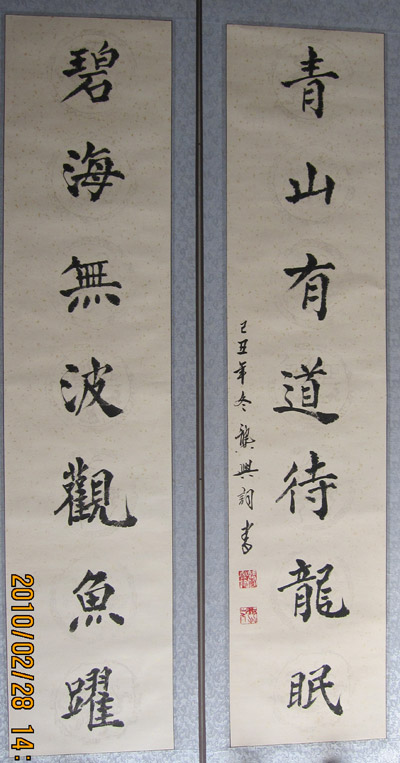 青山有道待龍眠
己丑年冬龔興詞書
碧海無波觀魚躍
2010/02/28 14: